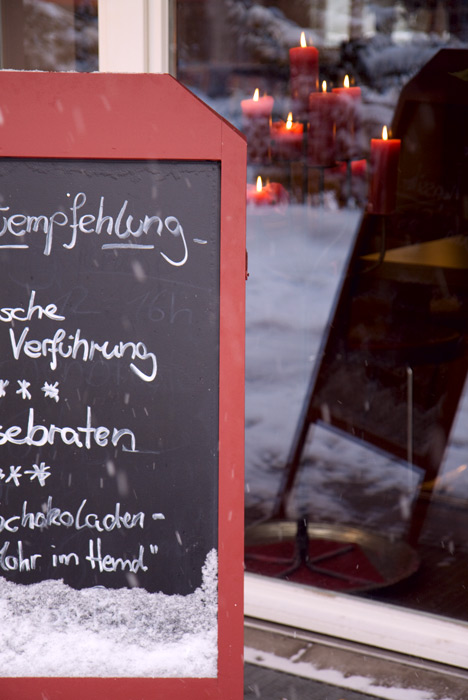 empfehlung
sche
Verführung
***
sebraten
***
schokoladen-
ohr im Hemd"